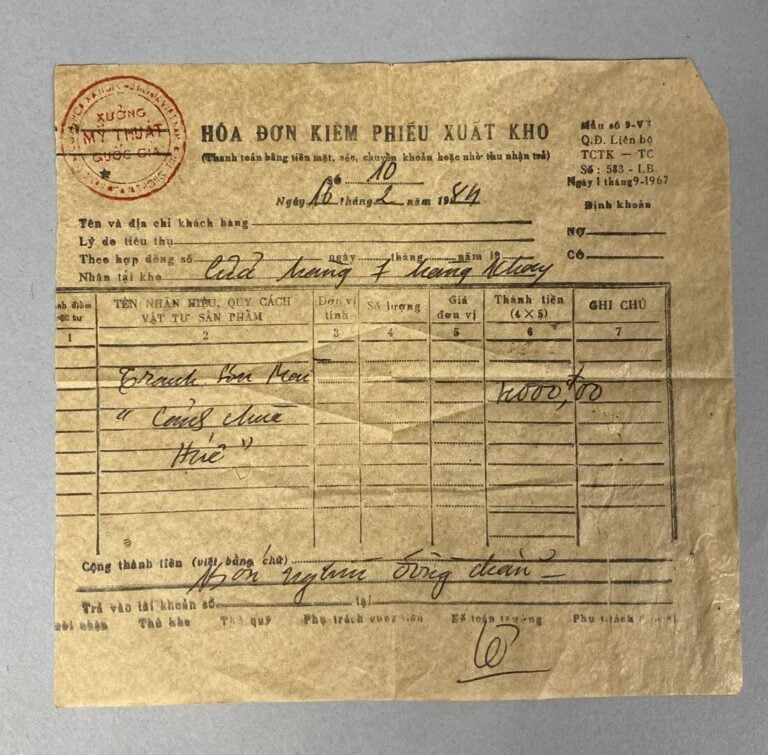 XƯỞNG
MỸ THUẬT
QUỐC GIA
HÓA ĐƠN KIÊM PHIẾU XUẤT KHO
(Thanh toán bằng tiền mặt, séc, chuyển khoản hoặc nhờ thu nhận trả)
Số 10
Ngày 16 tháng 2 năm 1984
Mẫu số 9-VT
Q.Đ. Liên bộ
TCTK — TC
Số : 583 - LB
Ngày 1 tháng 9-1967
Định khoản
Nợ
Có
Tên và địa chỉ khách hàng
Lý do tiêu thụ
Theo hợp đồng số ngày tháng năm 19
Nhận tại kho Cửa hàng 7 Hàng Khay
TÊN NHÃN HIỆU, QUY CÁCH VẬT TƯ SẢN PHẨM
Đơn vị tính
Số lượng
Giá đơn vị
Thành tiền (4 × 5)
GHI CHÚ
1 2 3 4 5 6 7
Tranh Sơn Mài 4000,00
" Cổng chùa
Huế "
Cộng thành tiền (viết bằng chữ)
Bốn nghìn đồng chẵn
Trả vào tài khoản số tại
nhận Thủ kho Thủ quỹ Phụ trách Kế toán trưởng Phụ trách